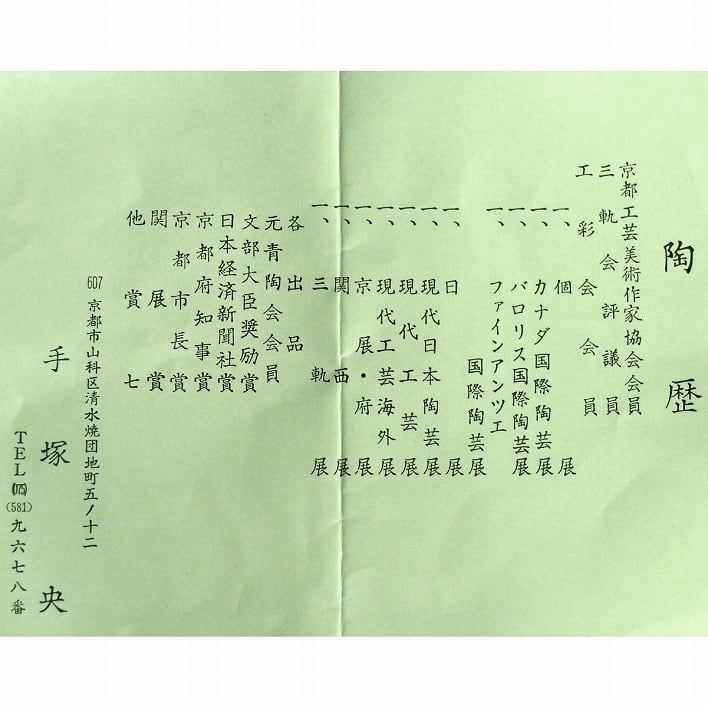 陶歴
京都工芸美術作家協会会員
三軌会評議員
工彩会会員
一、個展
一、カナダ国際陶芸展
一、バロリス国際陶芸展
一、ファインアンツエ
国際陶芸展
一、日展
一、現代日本陶芸展
一、現代工芸展
一、現代工芸海外展
一、京展・府展
一、関西展
一、三軌展
各出品
元青陶会会員
文部大臣奨励賞
日本経済新聞社賞
京都府知事賞
京都市長賞
関展賞
他賞七
607 京都市山科区清水焼団地町五ノ十二
手塚央
TEL(075)(581)九六七八番